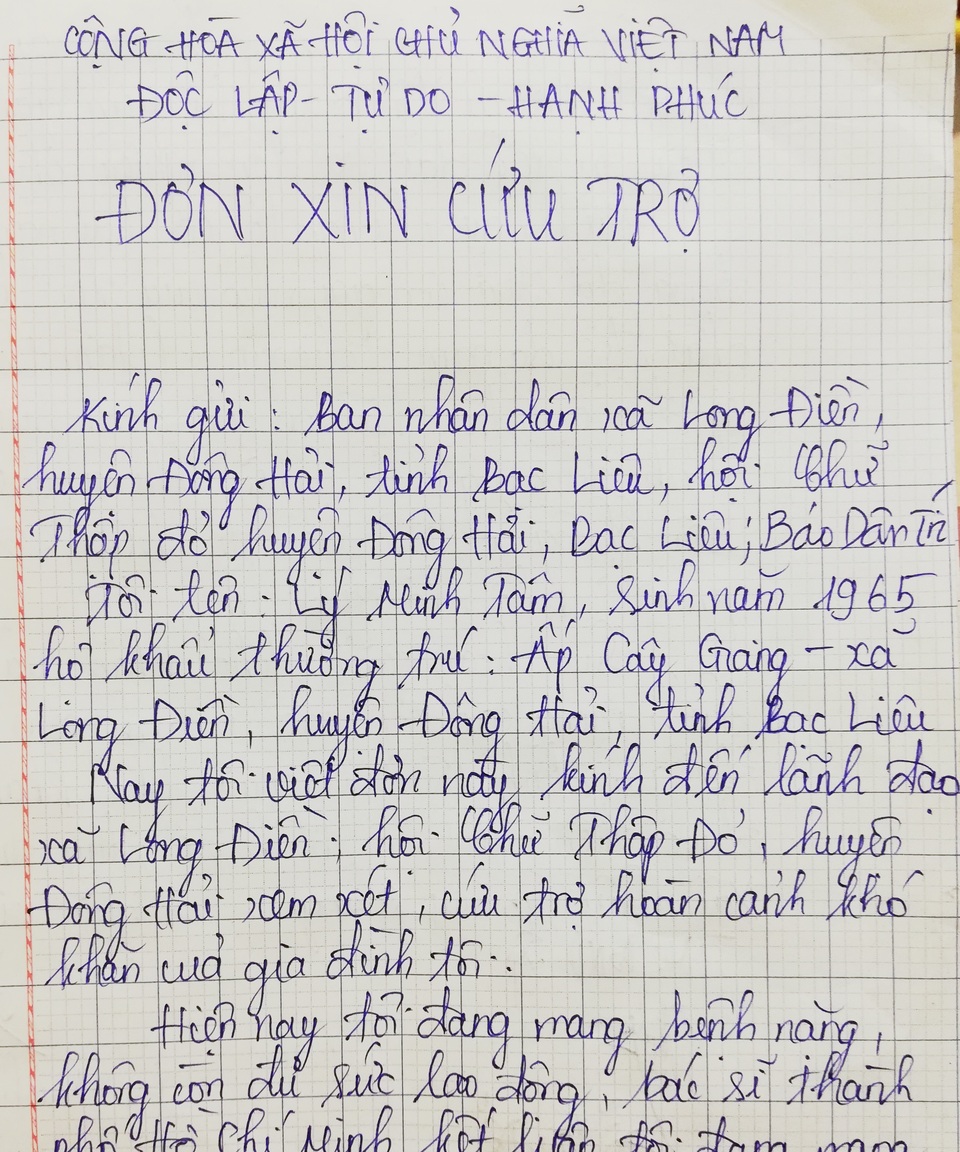 CỘNG HÒA XÃ HỘI CHỦ NGHĨA VIỆT NAM
ĐỘC LẬP - TỰ DO - HẠNH PHÚC
ĐƠN XIN CỨU TRỢ
Kính gửi: Ban nhân dân xã Long Điền,
huyện Đông Hải, tỉnh Bạc Liêu, hội Chữ
Thập đỏ huyện Đông Hải, Bạc Liêu; Báo Dân Trí
Tôi tên: Lý Minh Tâm, sinh năm 1965
hộ khẩu thường trú: Ấp Cây Giang - xã
Long Điền, huyện Đông Hải, tỉnh Bạc Liêu
Nay tôi viết đơn này kính đến lãnh đạo
xã Long Điền, hội Chữ Thập Đỏ, huyện
Đông Hải xem xét, cứu trợ hoàn cảnh khó
khăn của gia đình tôi.
Hiện nay tôi đang mang bệnh nặng,
không còn đủ sức lao động, bác sĩ thành
phố Hồ Chí Minh kết luận tôi